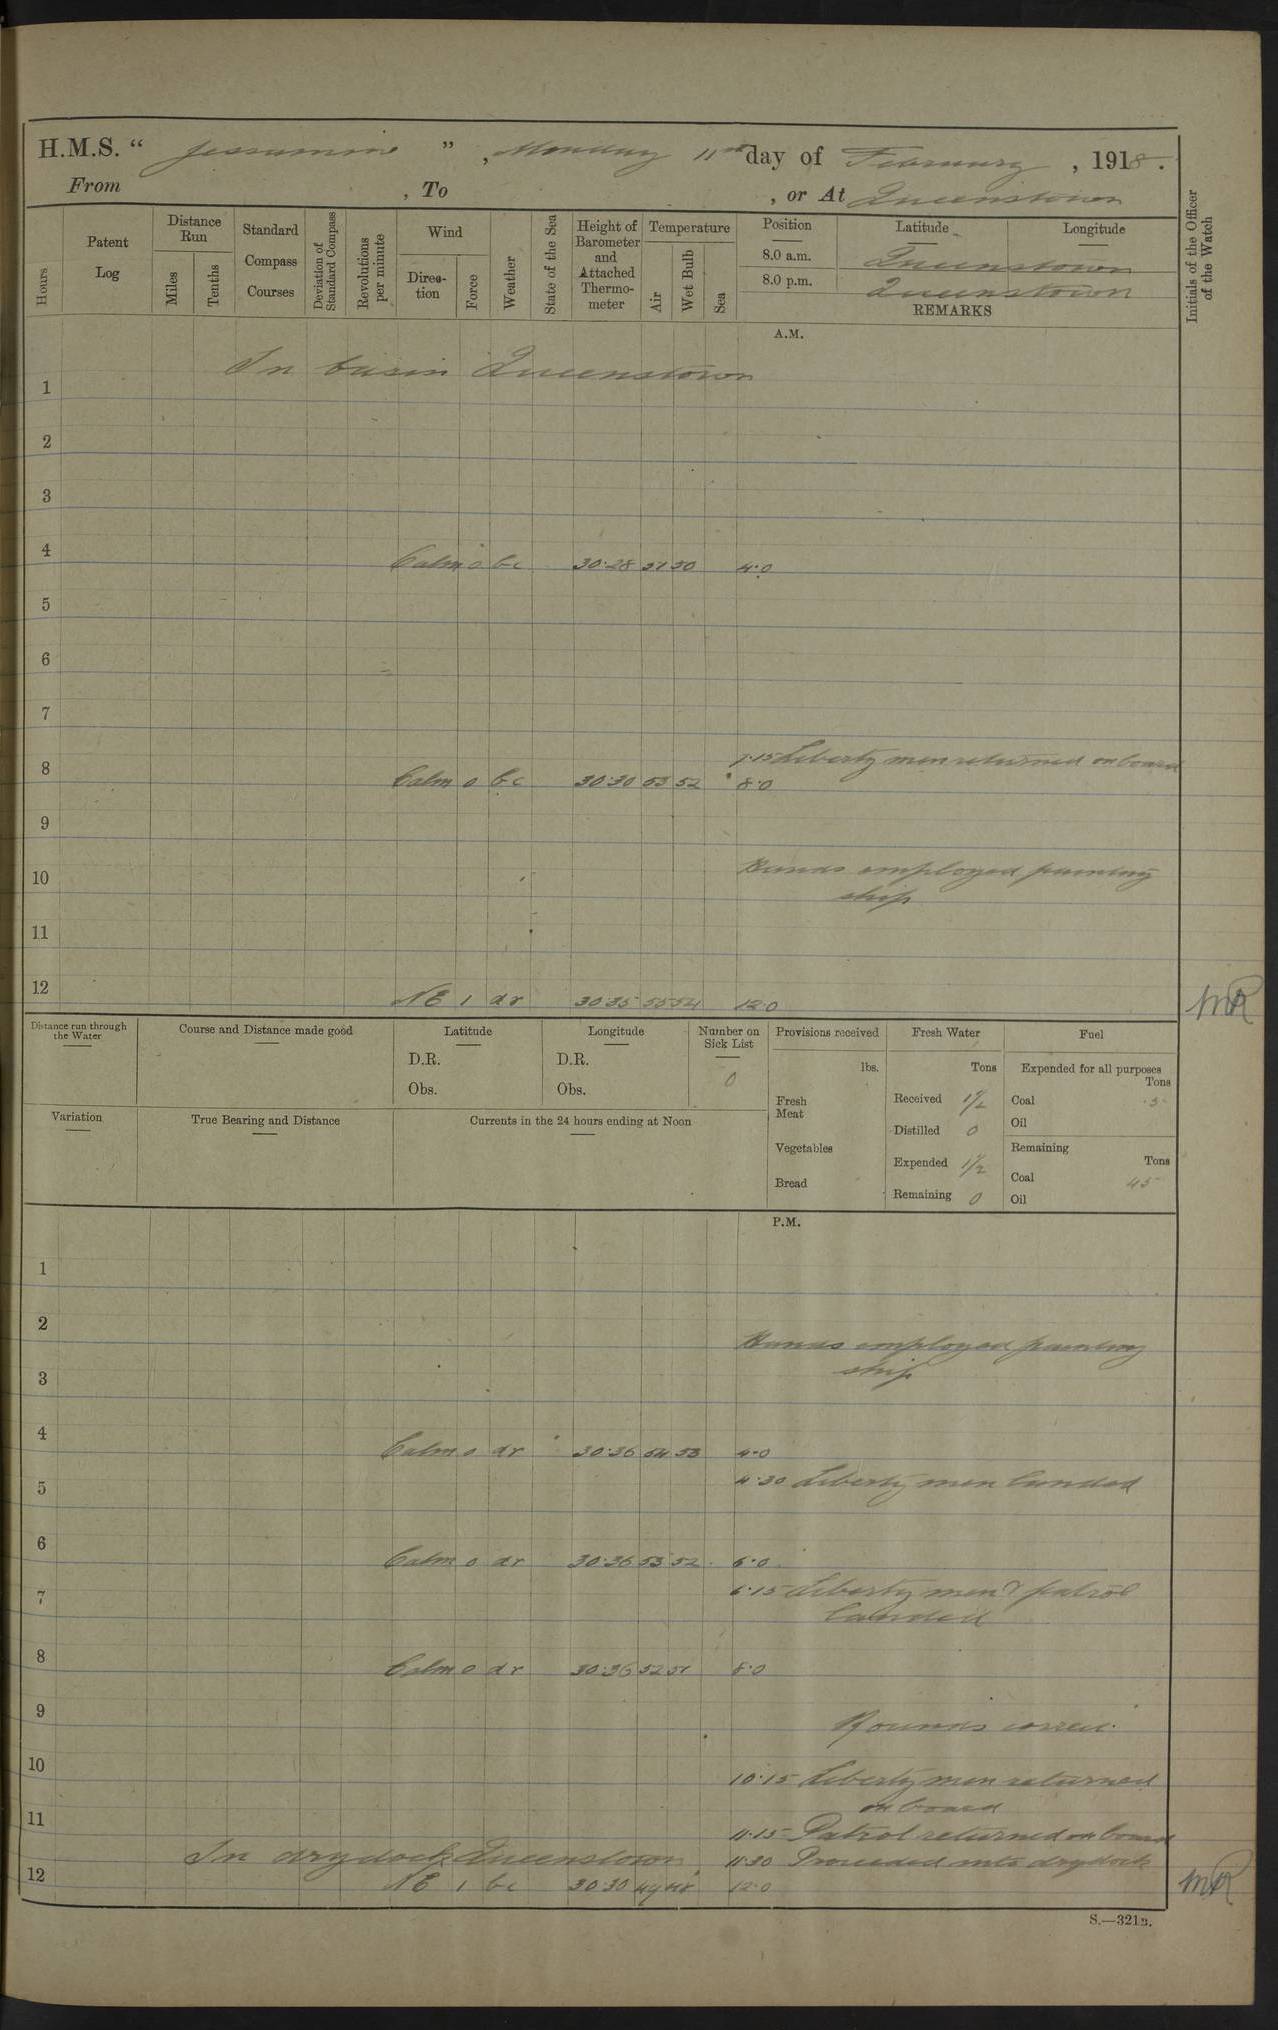 H.M.S. “ Jessamine ” , Monday 11th day of February , 1918 .
From , To , or At Queenstown
Hours
Patent Log
Distance Run
Miles
Tenths
Standard Compass Courses
Deviation of Standard Compass
Revolutions per minute
Wind
Direction
Force
Weather
State of the Sea
Height of Barometer and Attached Thermometer
Temperature
Air
Wet Bulb
Sea
Position Latitude Longitude
8.0 a.m. Queenstown
8.0 p.m. Queenstown
REMARKS
Initials of the Officer of the Watch
A.M.
In basin Queenstown
1
2
3
4 Calm 0 bc 30.28 51 50 4.0
5
6
7
7.15 Liberty men returned on board
8 Calm 0 bc 30.30 53 52 8.0
9
10 Hands employed painting
ship
11
12 NE 1 dr 30.35 55 54 12.0 MR
Distance run through the Water
Course and Distance made good
Latitude
D.R.
Obs.
Longitude
D.R.
Obs.
Number on Sick List
0
Provisions received
lbs.
Fresh Meat
Vegetables
Bread
Fresh Water
Tons
Received 1½
Distilled 0
Expended 1½
Remaining 0
Fuel
Expended for all purposes
Tons
Coal .5
Oil
Remaining
Tons
Coal 45
Oil
Variation
True Bearing and Distance
Currents in the 24 hours ending at Noon
P.M.
1
2 Hands employed painting
ship
3
4 Calm 0 dr 30.36 54 53 4.0
4.30 Liberty men landed
5
6 Calm 0 dr 30.36 53 52 6.0
6.15 Liberty men & patrol
7 landed
8 Calm 0 dr 30.36 52 51 8.0
9 Rounds correct.
10 10.15 Liberty men returned
on board
11 11.15 Patrol returned on board
In drydock Queenstown 11.30 Proceeded into drydock
12 NE 1 bc 30.30 49 48 12.0 MR
S.—321B.